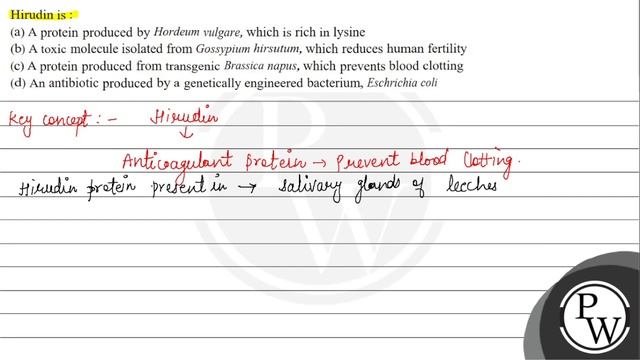 Hirudin is :
(a) A protein produced by Hordeum vulgare, which is rich in lysine
(b) A toxic molecule isolated from Gossypium hirsutum, which reduces human fertility
(c) A protein produced from transgenic Brassica napus, which prevents blood clotting
(d) An antibiotic produced by a genetically engineered bacterium, Eschrichia coli
Key concept : - Hirudin
↓
Anticoagulant Protein → Prevent blood Clotting.
Hirudin protein present in → salivary glands of leeches
P
W